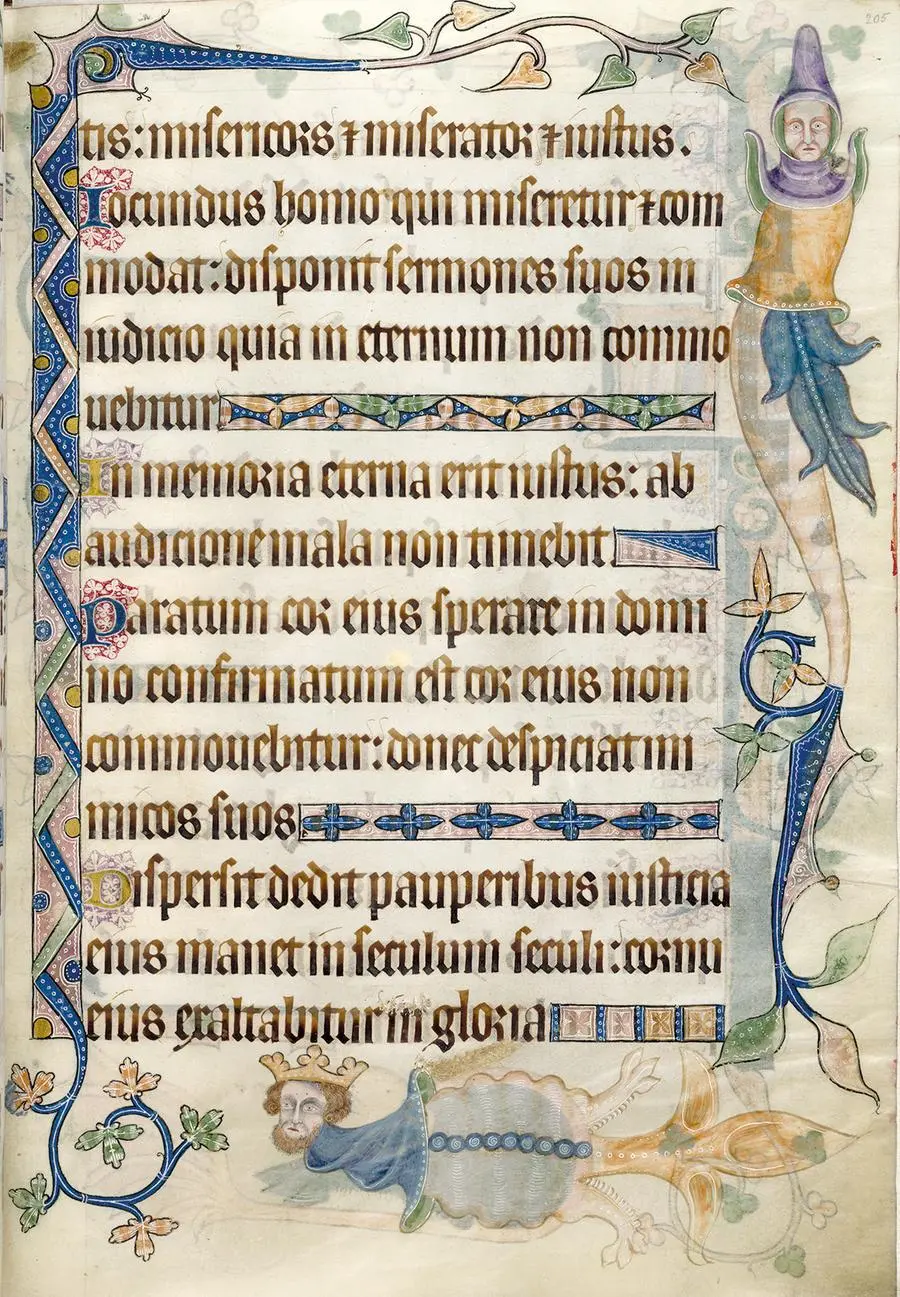 205
tis: misericors ⁊ miserator ⁊ iustus.
Iocundus homo qui miseretur ⁊ com
modat: disponit sermones suos in
iudicio quia in eternum non commo
uebitur
In memoria eterna erit iustus: ab
audicione mala non timebit.
Paratum cor eius sperare in domi
no confirmatum est cor eius non
commouebitur: donec despiciat ini
micos suos
Dispersit dedit pauperibus iusticia
eius manet in seculum seculi: cornu
eius exaltabitur in gloria